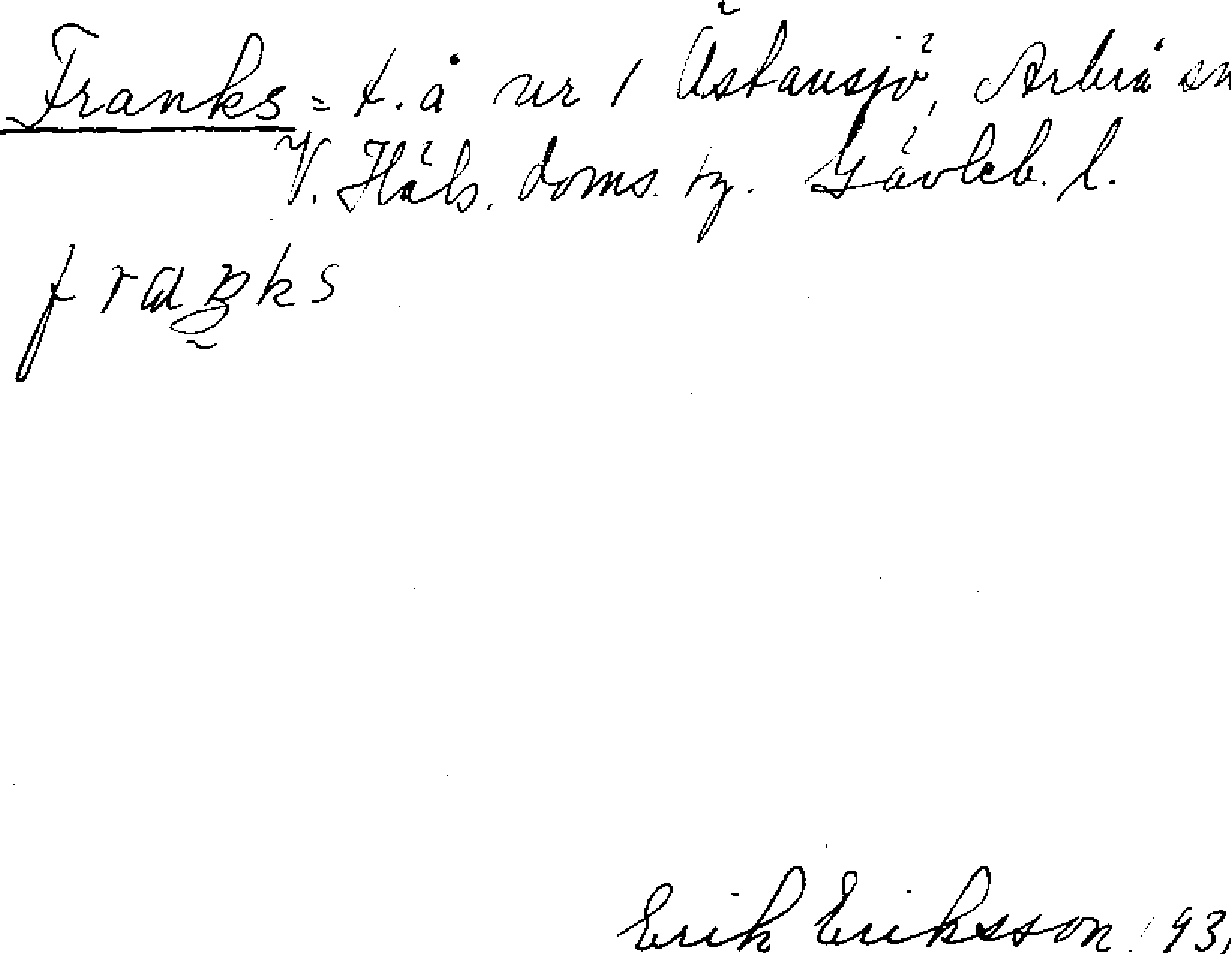 Franks = t. å nr 1 Östansjö, Arbrå sn
V. Häls. doms. tz. Gävleb. l.
fraŋks
Erik Eriksson 193